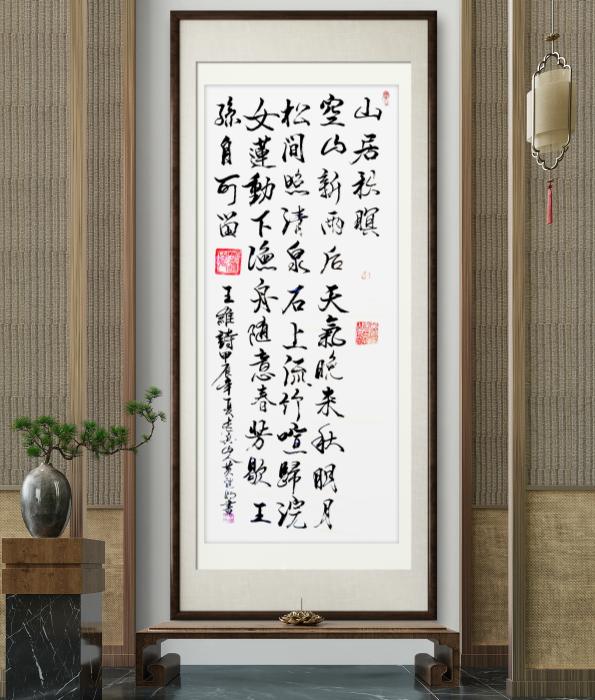 山居秋暝
空山新雨后天氣晚来秋明月
松间照清泉石上流竹喧歸浣
女蓮動下漁舟随意春芳歇王
孫自可留
王維詩甲辰年夏